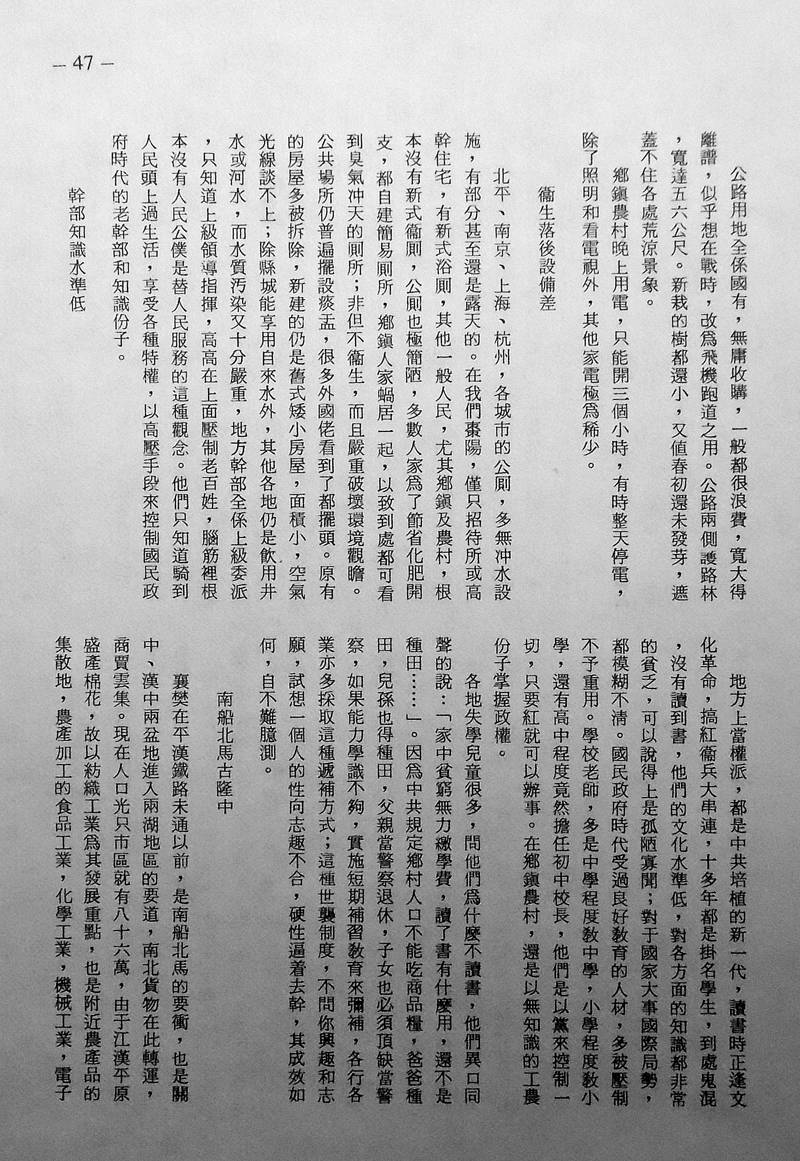 — 47 —
公路用地全係國有，無庸收購，一般都很浪費，寬大得
離譜，似乎想在戰時，改爲飛機跑道之用。公路兩側護路林
，寬達五六公尺。新栽的樹都還小，又值春初還未發芽，遮
蓋不住各處荒涼景象。
鄉鎮農村晚上用電，只能開三個小時，有時整天停電，
除了照明和看電視外，其他家電極爲稀少。
衞生落後設備差
北平、南京、上海、杭州，各城市的公厠，多無冲水設
施，有部分甚至還是露天的。在我們棗陽，僅只招待所或高
幹住宅，有新式浴厠，其他一般人民，尤其鄉鎮及農村，根
本沒有新式衞厠，公厠也極簡陋，多數人家爲了節省化肥開
支，都自建簡易厠所，鄉鎮人家蝸居一起，以致到處都可看
到臭氣冲天的厠所；非但不衞生，而且嚴重破壞環境觀瞻。
公共場所仍普遍擺設痰盂，很多外國佬看到了都擺頭。原有
的房屋多被拆除，新建的仍是舊式矮小房屋，面積小，空氣
光線談不上；除縣城能享用自來水外，其他各地仍是飲用井
水或河水，而水質污染又十分嚴重，地方幹部全係上級委派
，只知道上級領導指揮，高高在上面壓制老百姓，腦筋裡根
本沒有人民公僕是替人民服務的這種觀念。他們只知道騎到
人民頭上過生活，享受各種特權，以高壓手段來控制國民政
府時代的老幹部和知識份子。
幹部知識水準低
地方上當權派，都是中共培植的新一代，讀書時正逢文
化革命，搞紅衞兵大串連，十多年都是掛名學生，到處鬼混
，沒有讀到書，他們的文化水準低，對各方面的知識都非常
的貧乏，可以說得上是孤陋寡聞；對于國家大事國際局勢，
都模糊不清。國民政府時代受過良好教育的人材，多被壓制
不予重用。學校老師，多是中學程度教中學，小學程度教小
學，還有高中程度竟然擔任初中校長，他們是以黨來控制一
切，只要紅就可以辦事。在鄉鎮農村，還是以無知識的工農
份子掌握政權。
各地失學兒童很多，問他們爲什麼不讀書，他們異口同
聲的說：「家中貧窮無力繳學費，讀了書有什麼用，還不是
種田……」。因爲中共規定鄉村人口不能吃商品糧，爸爸種
田，兒孫也得種田，父親當警察退休，子女也必須頂缺當警
察，如果能力學識不夠，實施短期補習教育來彌補，各行各
業亦多採取這種遞補方式；這種世襲制度，不問你興趣和志
願，試想一個人的性向志趣不合，硬性逼着去幹，其成效如
何，自不難臆測。
南船北馬古隆中
襄樊在平漢鐵路未通以前，是南船北馬的要衝，也是關
中、漢中兩盆地進入兩湖地區的要道，南北貨物在此轉運，
商賈雲集。現在人口光只市區就有八十六萬，由于江漢平原
盛產棉花，故以紡織工業爲其發展重點，也是附近農產品的
集散地，農產加工的食品工業，化學工業，機械工業，電子